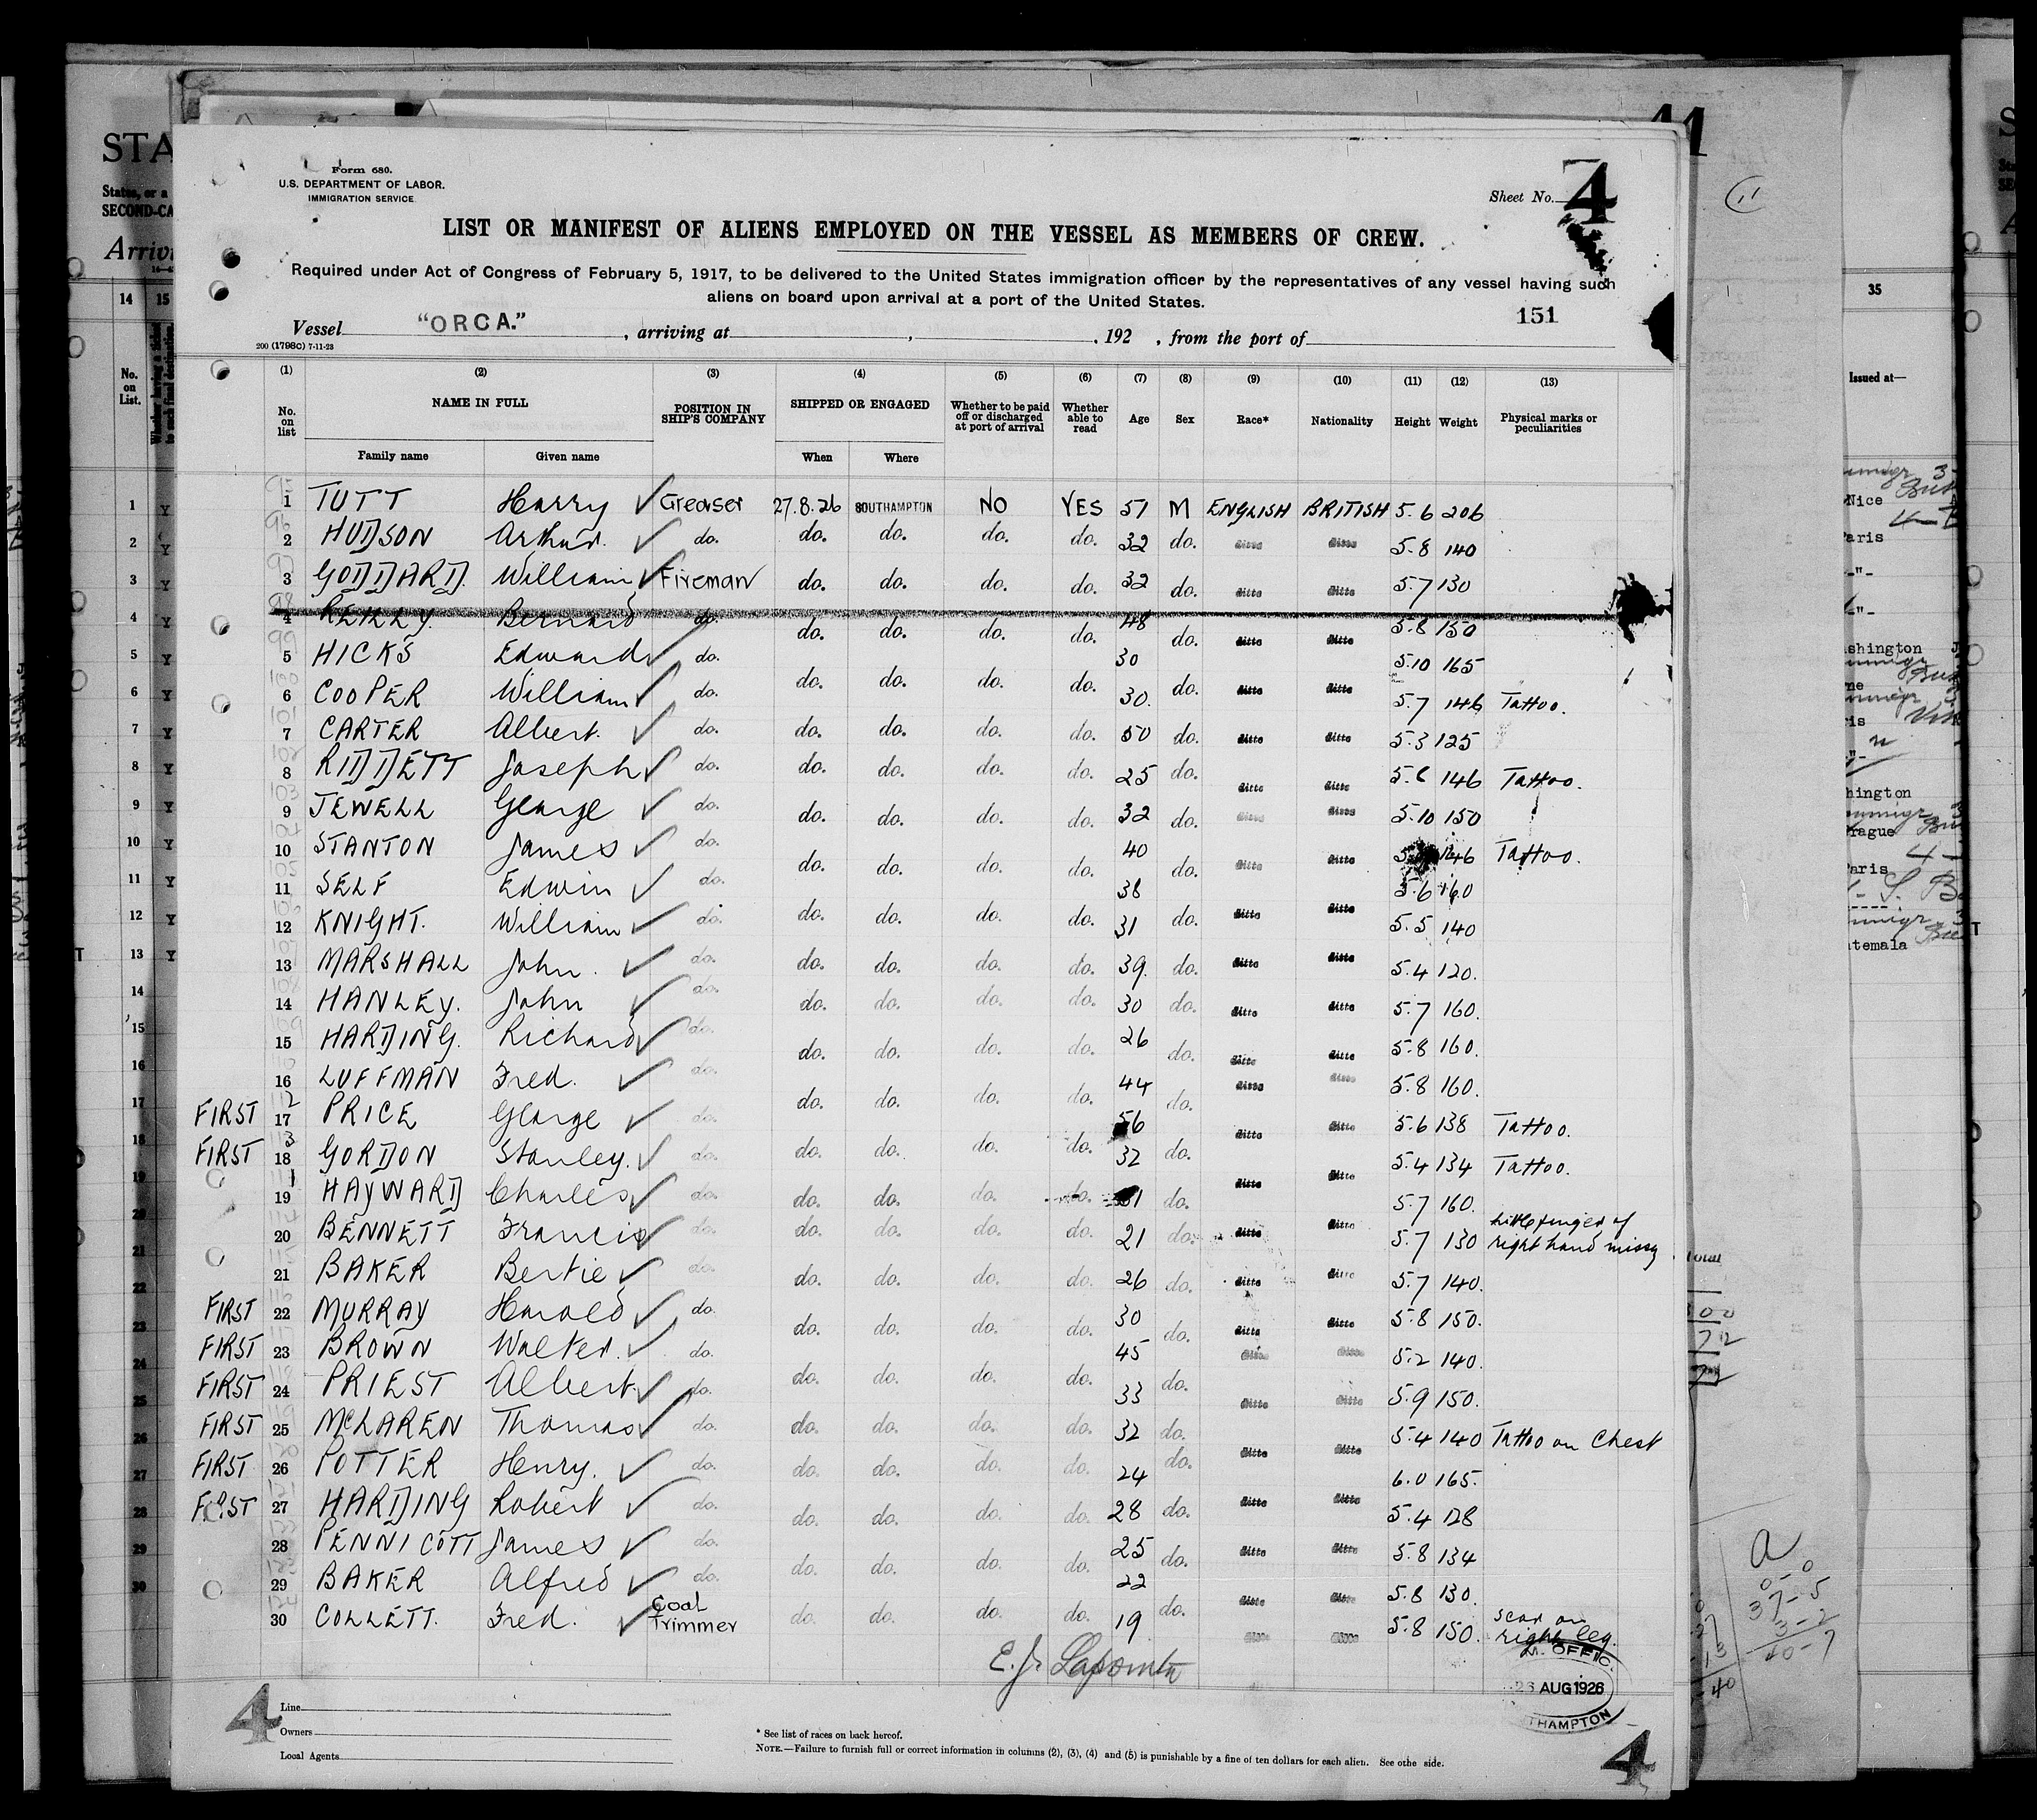 Form 680.
U.S. DEPARTMENT OF LABOR.
IMMIGRATION SERVICE.
Sheet No. 4
LIST OR MANIFEST OF ALIENS EMPLOYED ON THE VESSEL AS MEMBERS OF CREW.
Required under Act of Congress of February 5, 1917, to be delivered to the United States immigration officer by the representatives of any vessel having such
aliens on board upon arrival at a port of the United States.
151
Vessel "ORCA." , arriving at , , 192 , from the port of
200 (1798C) 7-11-23
(1) (2) (3) (4) (5) (6) (7) (8) (9) (10) (11) (12) (13)
No. on list NAME IN FULL POSITION IN SHIP'S COMPANY SHIPPED OR ENGAGED Whether to be paid off or discharged at port of arrival Whether able to read Age Sex Race* Nationality Height Weight Physical marks or peculiarities
Family name Given name When Where
1 TUTT Harry Greaser 27.8.26 SOUTHAMPTON NO YES 51 M ENGLISH BRITISH 5.6 206
2 HUDSON Arthur. do. do. do. do. do. 32 do. ditto ditto 5.8 140
3 GODDARD. William Fireman do. do. do. do. 32 do. ditto ditto 5.7 130
4 REILLY. Bernard do. do. do. do. do. 48 do. ditto ditto 5.8 150
5 HICKS Edward do. 30 5.10 165
6 COOPER William do. do. do. do. do. 30. do. ditto ditto 5.7 146 Tattoo.
7 CARTER Albert. do. do. do. do. do. 50 do. ditto ditto 5.3 125
8 RIDDETT Joseph do. do. do. do. do. 25 do. ditto ditto 5.6 146 Tattoo.
9 JEWELL George do. do. do. do. do. 32 do. ditto ditto 5.10 150
10 STANTON James do. do. do. do. do. 40 do. ditto ditto 146 Tattoo.
11 SELF Edwin do. 38 5.6 160
12 KNIGHT. William do. do. do. do. do. 31 do. ditto ditto 5.5 140
13 MARSHALL John. do. do. do. do. do. 39. do. ditto ditto 5.4 120.
14 HANLEY. John do. do. do. do. do. 30 do. ditto ditto 5.7 160.
15 HARDING. Richard do. do. do. do. do. 26 do. ditto ditto 5.8 160.
16 LUFFMAN Fred. do. 44 ditto ditto 5.8 160.
FIRST 17 PRICE George do. do. do. do. do. 56 do. ditto ditto 5.6 138 Tattoo.
FIRST 18 GORDON Stanley. do. do. do. do. do. 32 do. 5.4 134 Tattoo.
19 HAYWARD Charles do. do. do. do. do. do. ditto ditto 5.7 160.
20 BENNETT Francis do. do. do. do. do. 21 do. ditto ditto 5.7 130 Little finger of right hand missg
21 BAKER Bertie do. do. do. do. do. 26 do. ditto ditto 5.7 140.
FIRST 22 MURRAY Harold do. do. do. do. do. 30 do. ditto ditto 5.8 150.
FIRST 23 BROWN Walter. do. 45 ditto ditto 5.2 140.
FIRST 24 PRIEST Albert. do. do. do. do. do. 33 do. ditto ditto 5.9 150.
FIRST 25 McLAREN Thomas do. do. do. do. do. 32 do. 5.4 140 Tattoo on Chest
FIRST 26 POTTER Henry. do. do. do. do. do. 24 do. ditto ditto 6.0 165.
FIRST 27 HARDING Robert do. do. do. do. do. 28 do. ditto ditto 5.4 128
28 PENNICOTT James do. 25 ditto ditto 5.8 134
29 BAKER Alfred do. do. do. do. do. 22 do. ditto ditto 5.8 130.
30 COLLETT. Fred. Coal Trimmer do. do. do. do. 19 do. ditto ditto 5.8 150. scar on right leg.
26 AUG 1926
4
Line
Owners
Local Agents
* See list of races on back hereof.
NOTE.—Failure to furnish full or correct information in columns (2), (3), (4) and (5) is punishable by a fine of ten dollars for each alien. See othe side.
4